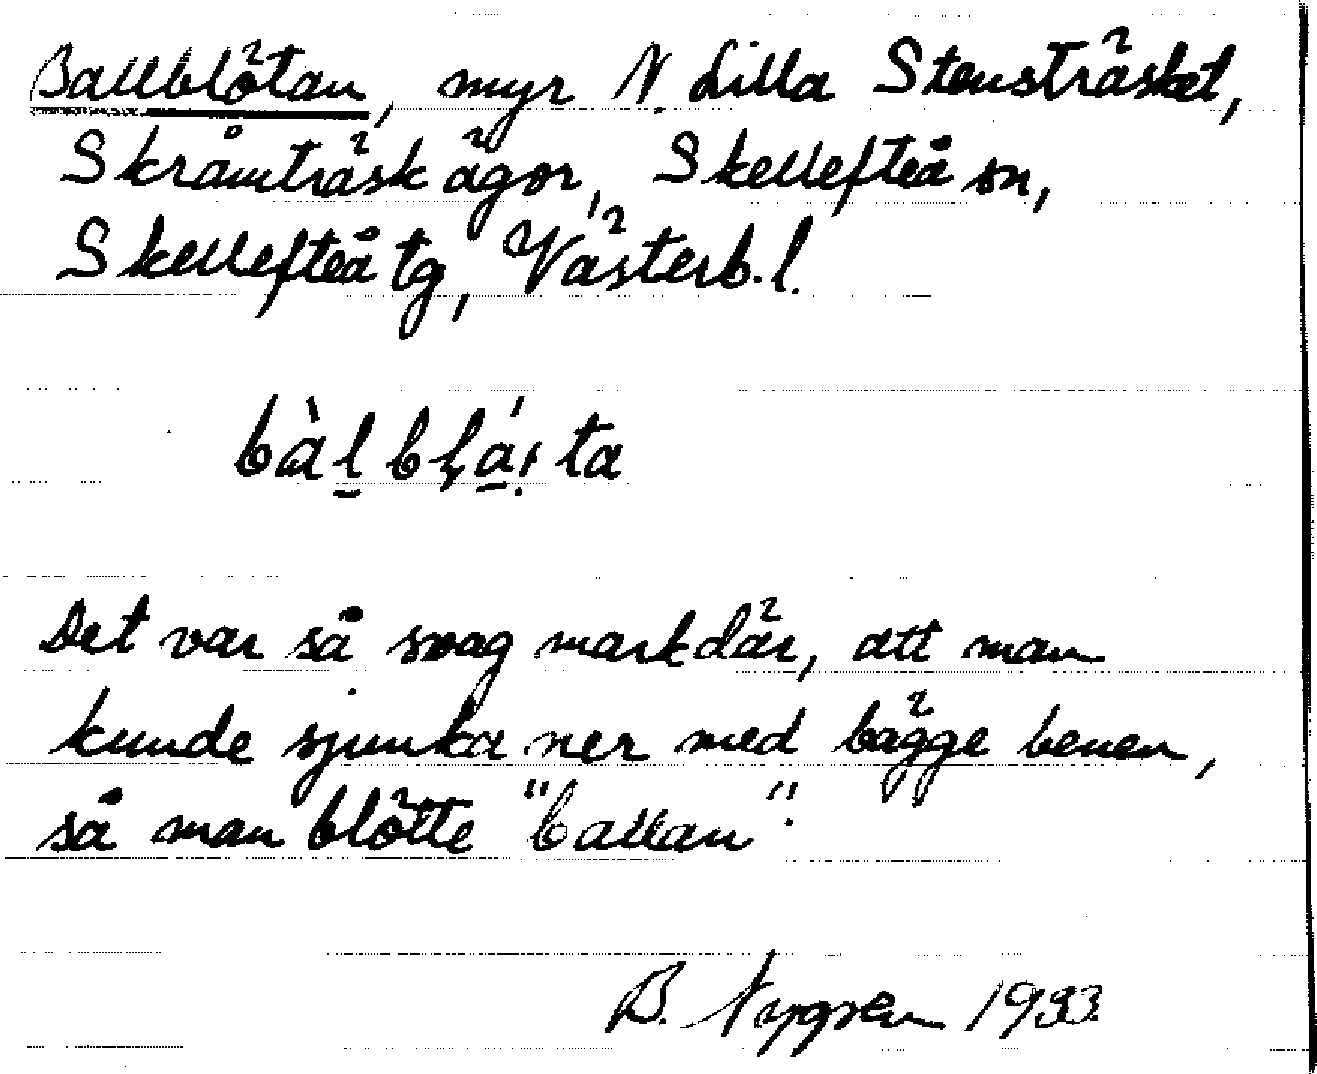 Ballblötan, myr N. Lilla Stensträsket,
Skråmträsk ägor, Skellefteå sn,
Skellefteå tg, Västerb. l.
Det var så svag mark där, att man
kunde sjunka ner med bägge benen,
så man blötte "ballan".
B. Nygren 1933.